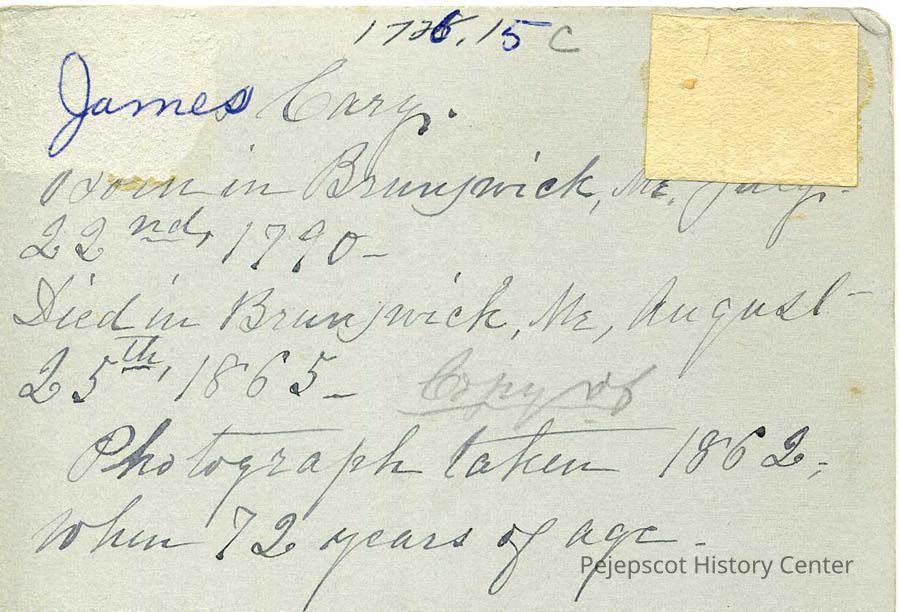 1726.15 c
James Cary.
Born in Brunswick, Me. July
22nd, 1790-
Died in Brunswick, Me, August
25th, 1865- Copy of
Photograph taken 1862,
when 72 years of age-
Pejepscot History Center